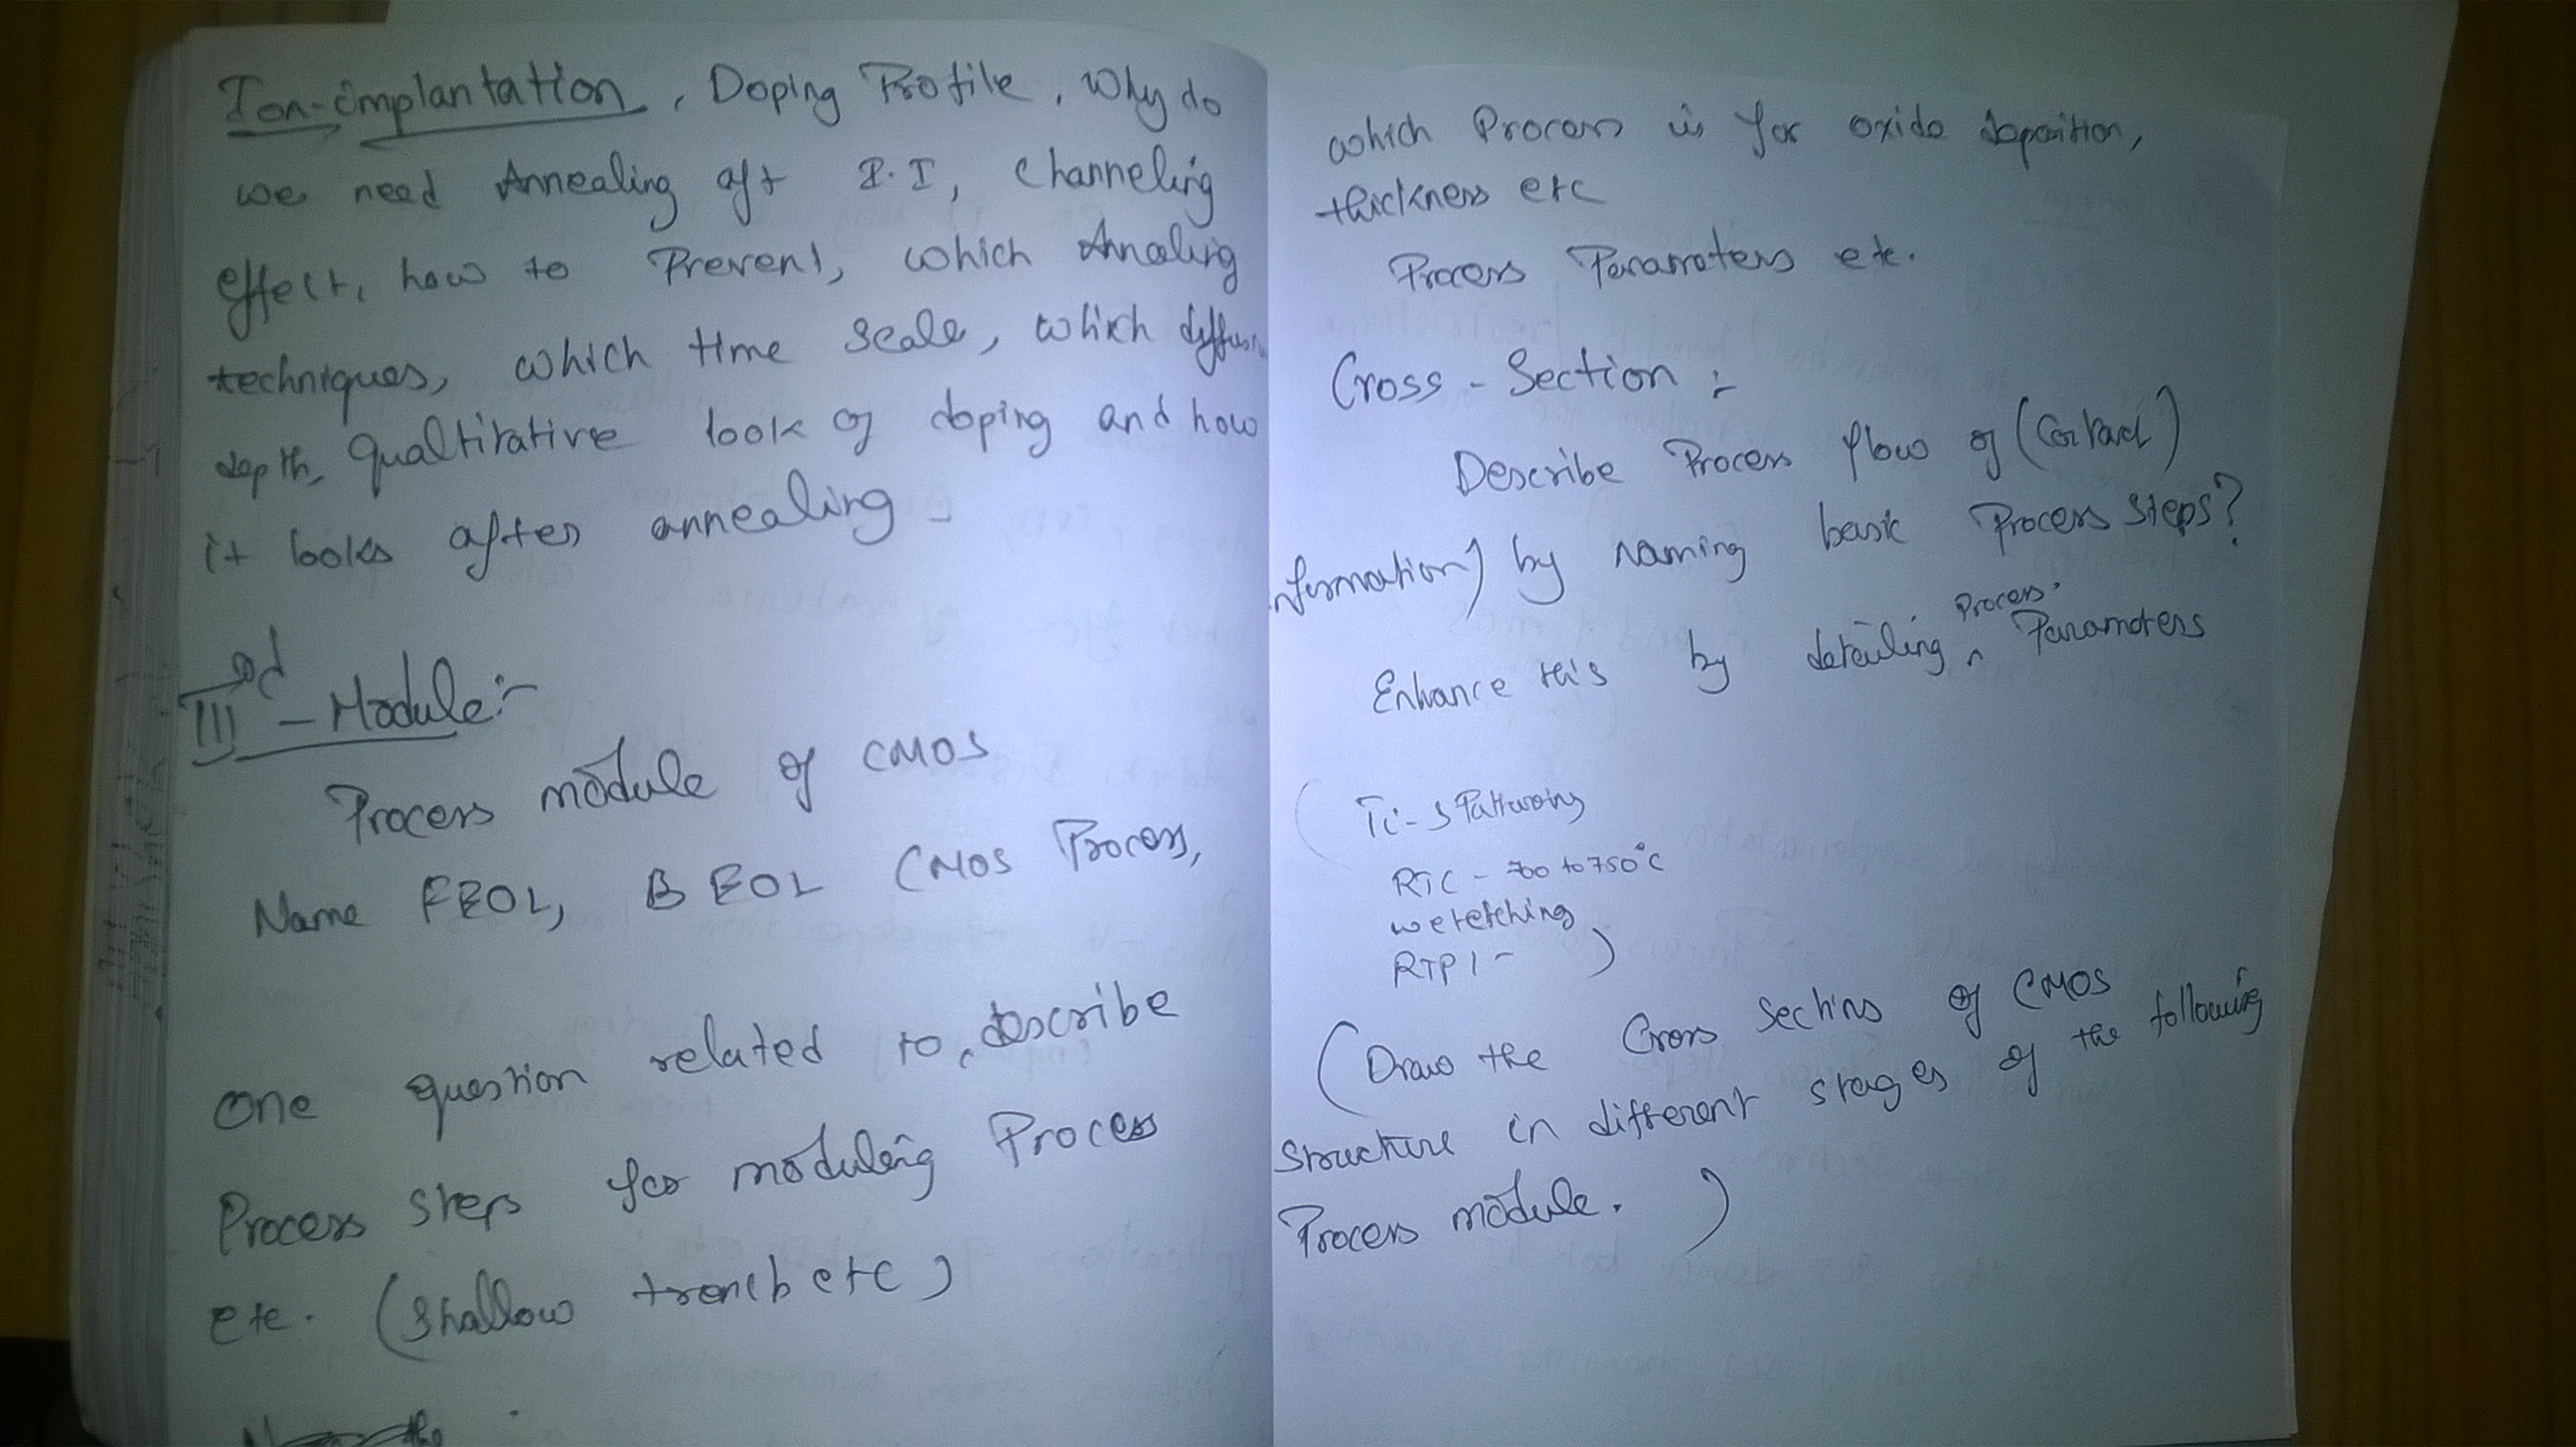 Ion-implantation, Doping Profile, Why do
we need Annealing aft I.I, Channeling
effect, how to Prevent, which Annealing
techniques, which time Scale, which diffusion
depth, Qualtitative look of doping and how
it looks after annealing
IIIrd - Module:-
Process module of CMOS
Name FEOL, BEOL CMOS Process,
One question related to, describe
Process steps for moduleing Process
etc. (Shallow trench etc)
which Process is for oxide deposition,
thickness etc
Process Parameters etc.
Cross-Section :-
Describe Process flow of (Contact)
formation) by naming basic Process Steps?
Enhance this by detailing Process Parameters
(Ti-
RTC - 700 to 750°C
wetetching
RTP1 - )
(Draw the Cross Sections of CMOS
Structure in different stages of the following
Process module. )